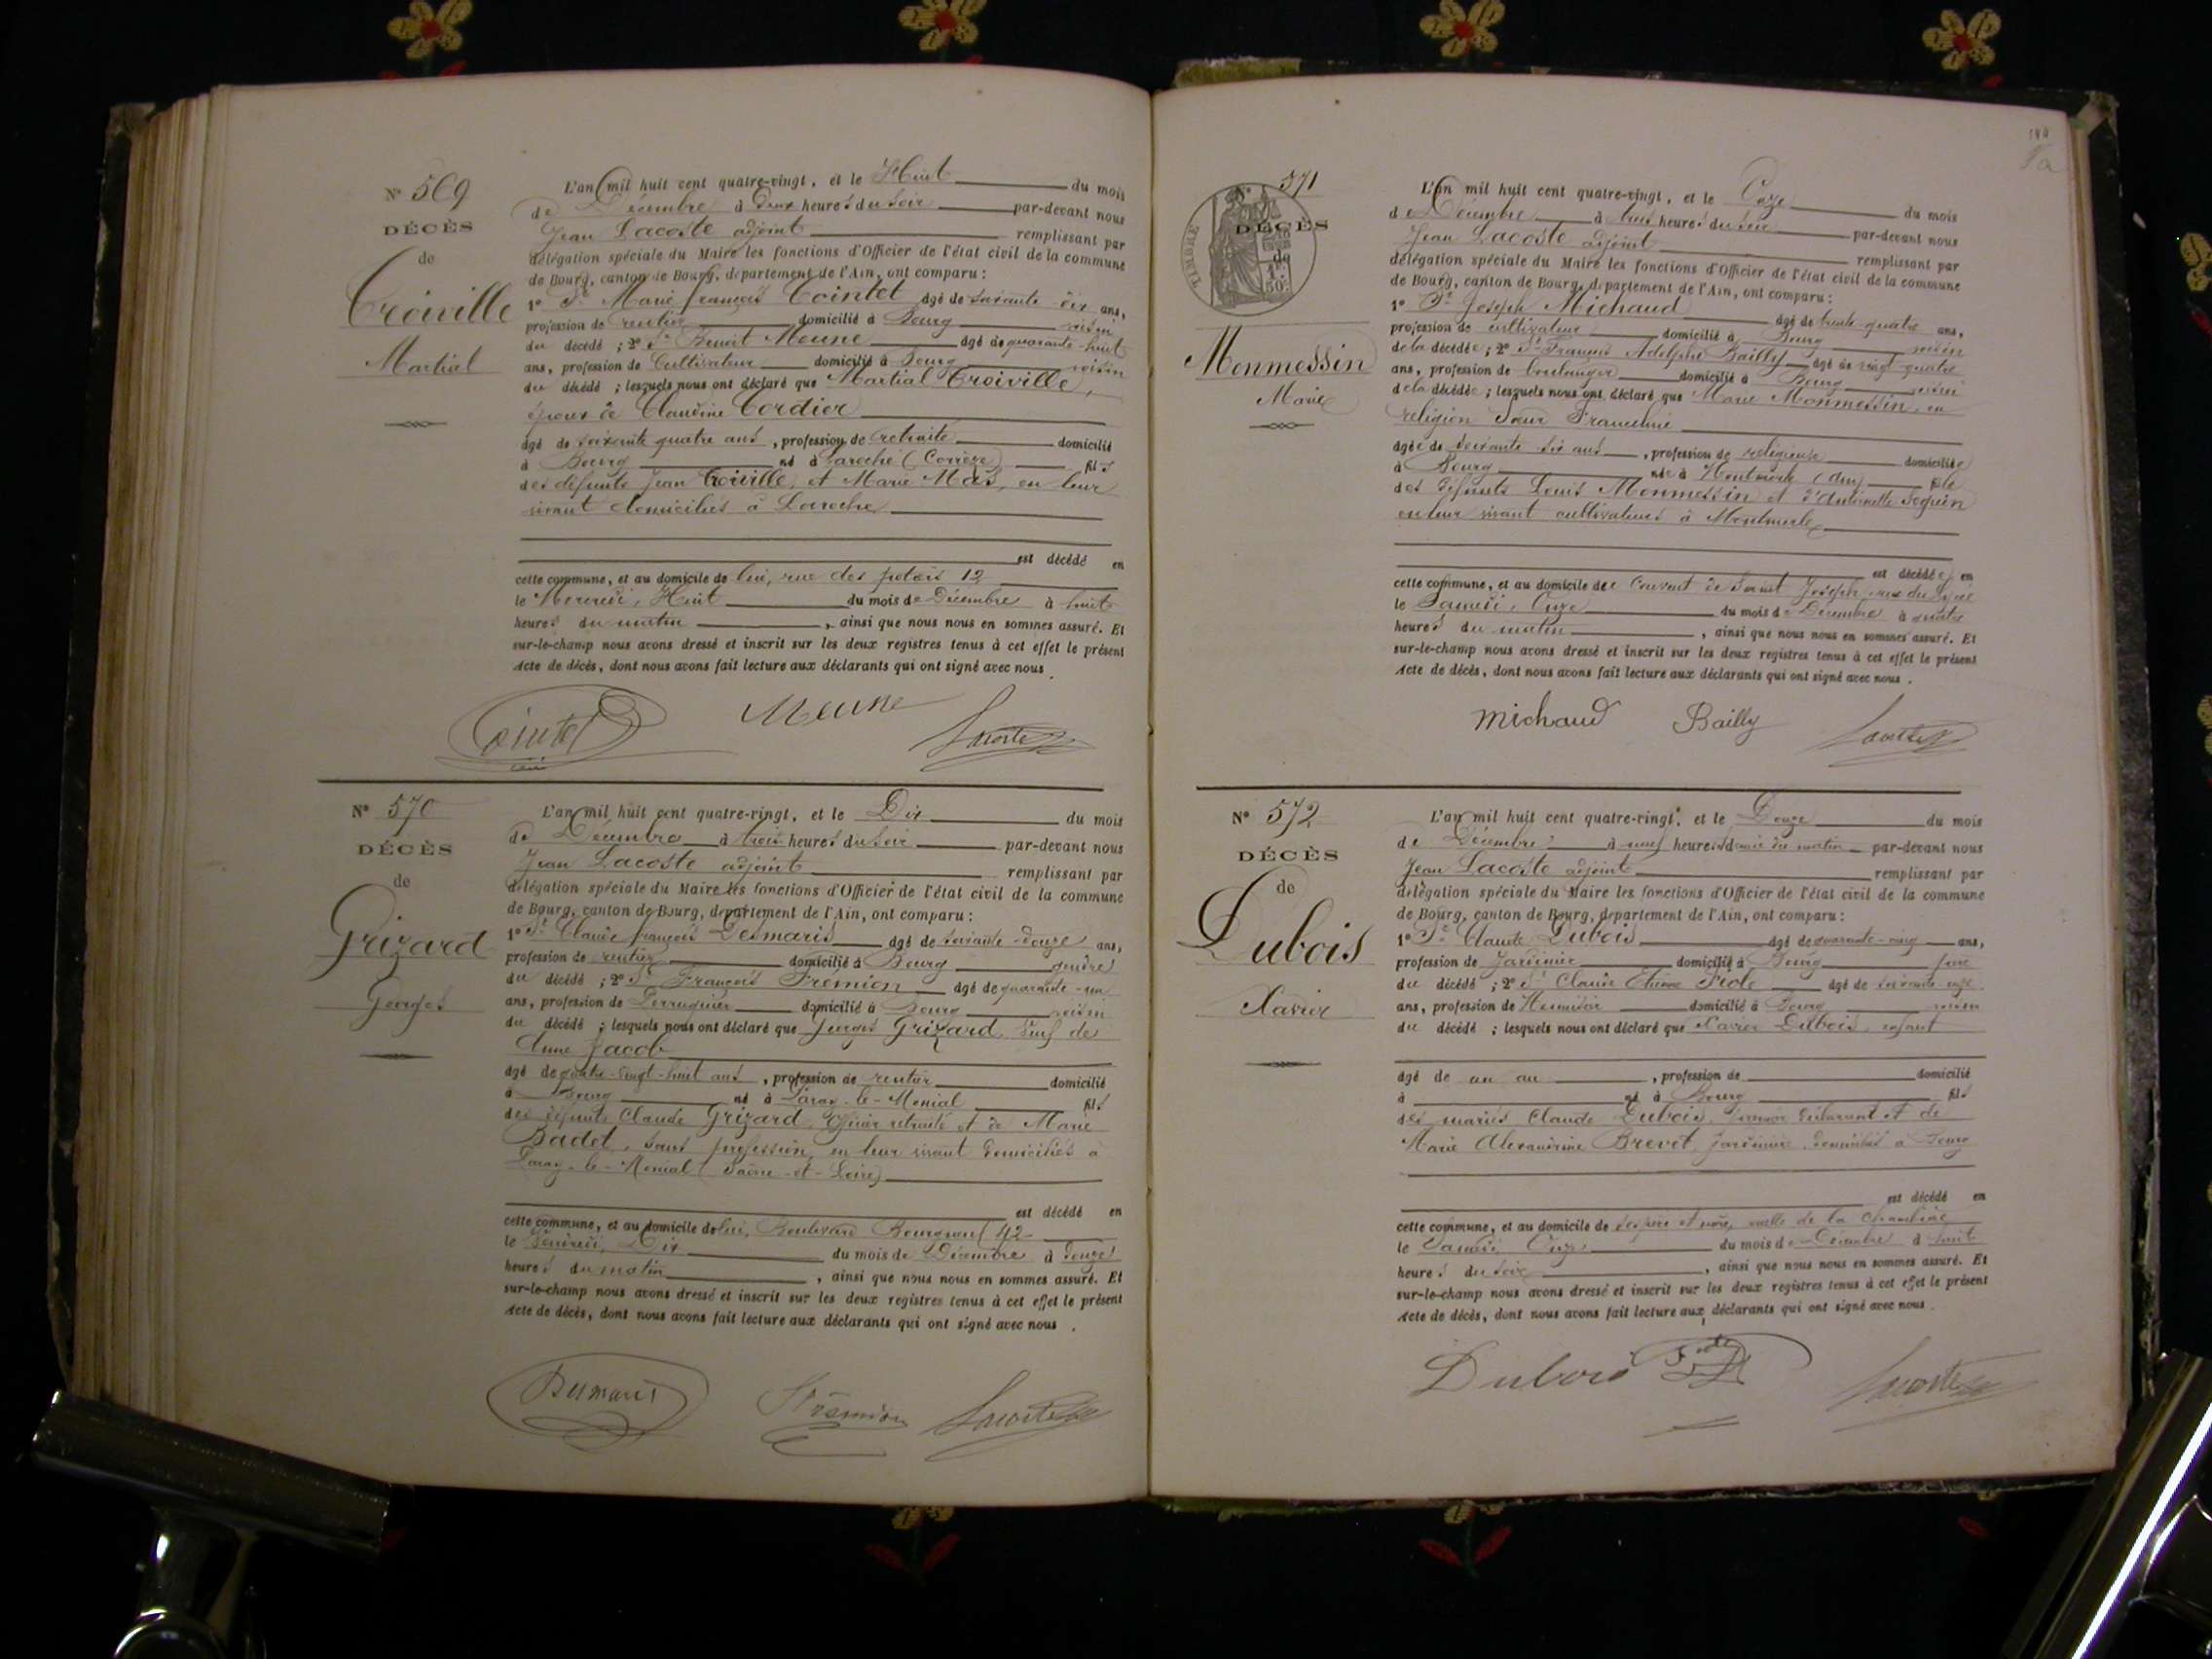 N° 569
DÉCÈS
de
Croiville
Martial
L'an mil huit cent quatre-vingt, et le Huit du mois
de Décembre à deux heures du soir par-devant nous
Jean Lacoste adjoint remplissant par
délégation spéciale du Maire les fonctions d'Officier de l'état civil de la commune
de Bourg, canton de Bourg, département de l'Ain, ont comparu :
1° Sr Marie françois Cointet âgé de soixante dix ans,
profession de rentier domicilié à Bourg voisin
du décédé ; 2° Sr Benoit Meune âgé de quarante-huit
ans, profession de Cultivateur domicilié à Bourg voisin
du décédé ; lesquels nous ont déclaré que Martial Croiville,
époux de Claudine Cordier
âgé de soixante quatre ans, profession de retraité domicilié
à Bourg né à Laroche (Corrèze) fils
des défunts Jean Croiville, et Marie Mas, en leur
vivant domiciliés à Laroche
est décédé en
cette commune, et au domicile de lui, rue des 12
le Mercredi, Huit du mois de Décembre à huit
heures du matin, ainsi que nous nous en sommes assuré. Et
sur-le-champ nous avons dressé et inscrit sur les deux registres tenus à cet effet le présent
Acte de décès, dont nous avons fait lecture aux déclarants qui ont signé avec nous.
Cointet Meune Lacoste
N° 570
DÉCÈS
de
Grizard
Georges
L'an mil huit cent quatre-vingt, et le Dix du mois
de Décembre à trois heures du soir par-devant nous
Jean Lacoste adjoint remplissant par
délégation spéciale du Maire les fonctions d'Officier de l'état civil de la commune
de Bourg, canton de Bourg, département de l'Ain, ont comparu :
1° Sr Claude françois Desmaris âgé de soixante-douze ans,
profession de rentier domicilié à Bourg gendre
du décédé ; 2° Sr François Frémion âgé de quarante-un
ans, profession de Perruquier domicilié à Bourg voisin
du décédé ; lesquels nous ont déclaré que Georges Grizard veuf de
Anne Jacob
âgé de quatre-vingt-huit ans, profession de rentier domicilié
à Bourg né à Paray-le-Monial fils
des défunts Claude Grizard, Officier retraité et de Marie
Badet, sans profession, en leur vivant domiciliés à
Paray-le-Monial (Saône-et-Loire)
est décédé en
cette commune, et au domicile de lui, Boulevard Bourgneuf 42
le Vendredi, Dix du mois de Décembre à douze
heures du matin, ainsi que nous nous en sommes assuré. Et
sur-le-champ nous avons dressé et inscrit sur les deux registres tenus à cet effet le présent
Acte de décès, dont nous avons fait lecture aux déclarants qui ont signé avec nous.
Desmaris Frémion Lacoste
180
N° 571
DÉCÈS
de
TIMBRE
Monmessin
Marie
L'an mil huit cent quatre-vingt, et le Onze du mois
de Décembre à trois heures du soir par-devant nous
Jean Lacoste adjoint remplissant par
délégation spéciale du Maire les fonctions d'Officier de l'état civil de la commune
de Bourg, canton de Bourg, département de l'Ain, ont comparu :
1° Sr Joseph Michaud âgé de trente-quatre ans,
profession de cultivateur domicilié à Bourg voisin
de la décédée ; 2° Sr François Adolphe Bailly âgé de vingt-quatre
ans, profession de boulanger domicilié à Bourg voisin
de la décédée ; lesquels nous ont déclaré que Marie Monmessin, en
religion Sœur Franceline
âgée de soixante dix ans, profession de religieuse domiciliée
à Bourg née à Montmerle (Ain) fille
des défunts Louis Monmessin et d'Antoinette Seguin
en leur vivant cultivateurs à Montmerle
est décédée en
cette commune, et au domicile de Couvent de Saint Joseph rue du
le Samedi, Onze du mois de Décembre à quatre
heures du matin, ainsi que nous nous en sommes assuré. Et
sur-le-champ nous avons dressé et inscrit sur les deux registres tenus à cet effet le présent
Acte de décès, dont nous avons fait lecture aux déclarants qui ont signé avec nous.
Michaud Bailly Lacoste
N° 572
DÉCÈS
de
Dubois
Xavier
L'an mil huit cent quatre-vingt, et le Douze du mois
de Décembre à neuf heures demie du matin par-devant nous
Jean Lacoste adjoint remplissant par
délégation spéciale du Maire les fonctions d'Officier de l'état civil de la commune
de Bourg, canton de Bourg, département de l'Ain, ont comparu :
1° Sr Claude Dubois âgé de quarante-cinq ans,
profession de Jardinier domicilié à Bourg père
du décédé ; 2° Sr Claude Etienne âgé de soixante-onze
ans, profession de domicilié à Bourg voisin
du décédé ; lesquels nous ont déclaré que Xavier Dubois, enfant
âgé de un an, profession de domicilié
à né à Bourg fils
des mariés Claude Dubois, premier déclarant et de
Marie Alexandrine Brevet, Jardinière, domiciliés à Bourg
est décédé en
cette commune, et au domicile de ses père et mère, de la Chambière
le Samedi Onze du mois de Décembre à huit
heures du soir, ainsi que nous nous en sommes assuré. Et
sur-le-champ nous avons dressé et inscrit sur les deux registres tenus à cet effet le présent
Acte de décès, dont nous avons fait lecture aux déclarants qui ont signé avec nous.
Dubois Lacoste